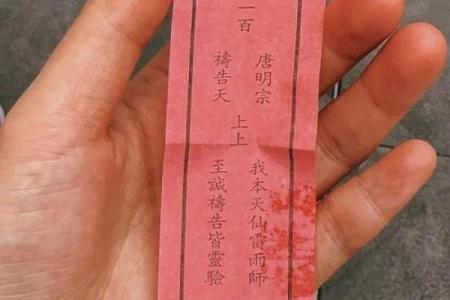 一百
唐明宗
禱告天
上上
我本天仙雷雨師
至誠禱告皆靈驗